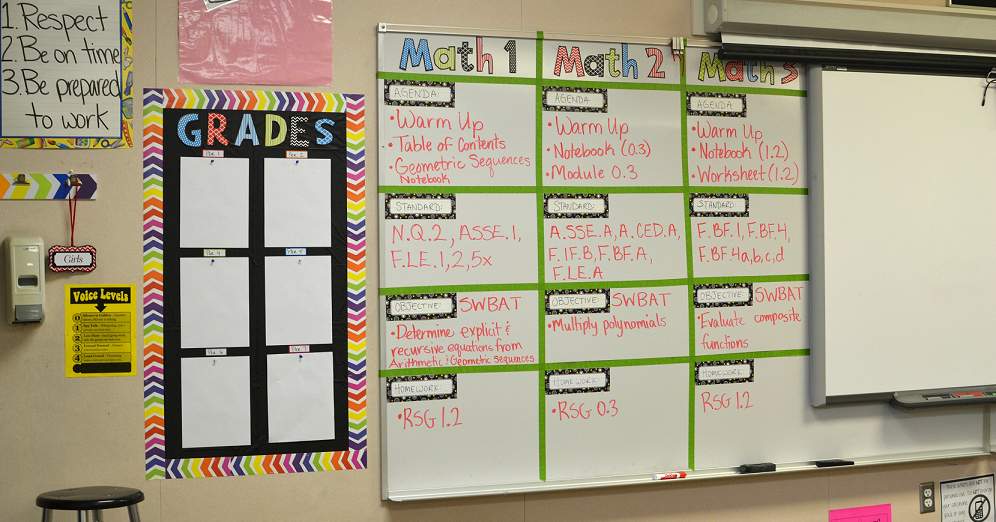 1. Respect
2. Be on time
3. Be prepared
to work
GRADES
Girls
Voice Levels
0
1
2
3
4
Math 1
AGENDA:
• Warm Up
• Table of Contents
• Geometric Sequences
Notebook
STANDARD:
N.Q.2, ASSE.1,
F.LE.1,2,5x
OBJECTIVE: SWBAT
• Determine explicit &
recursive equations from
Arithmetic & Geometric Sequences
HOMEWORK:
• RSG 1.2
Math 2
AGENDA:
• Warm Up
• Notebook (0.3)
• Module 0.3
STANDARD:
A.SSE.A, A.CED.A,
F.IF.B, F.BF.A,
F.LE.A
OBJECTIVE: SWBAT
• Multiply polynomials
HOMEWORK:
• RSG 0.3
Math 3
AGENDA:
• Warm Up
• Notebook (1.2)
• Worksheet (1.2)
STANDARD:
F.BF.1, F.BF.4,
F.BF.4a,b,c,d
OBJECTIVE: SWBAT
• Evaluate composite
functions
HOMEWORK:
RSG 1.2